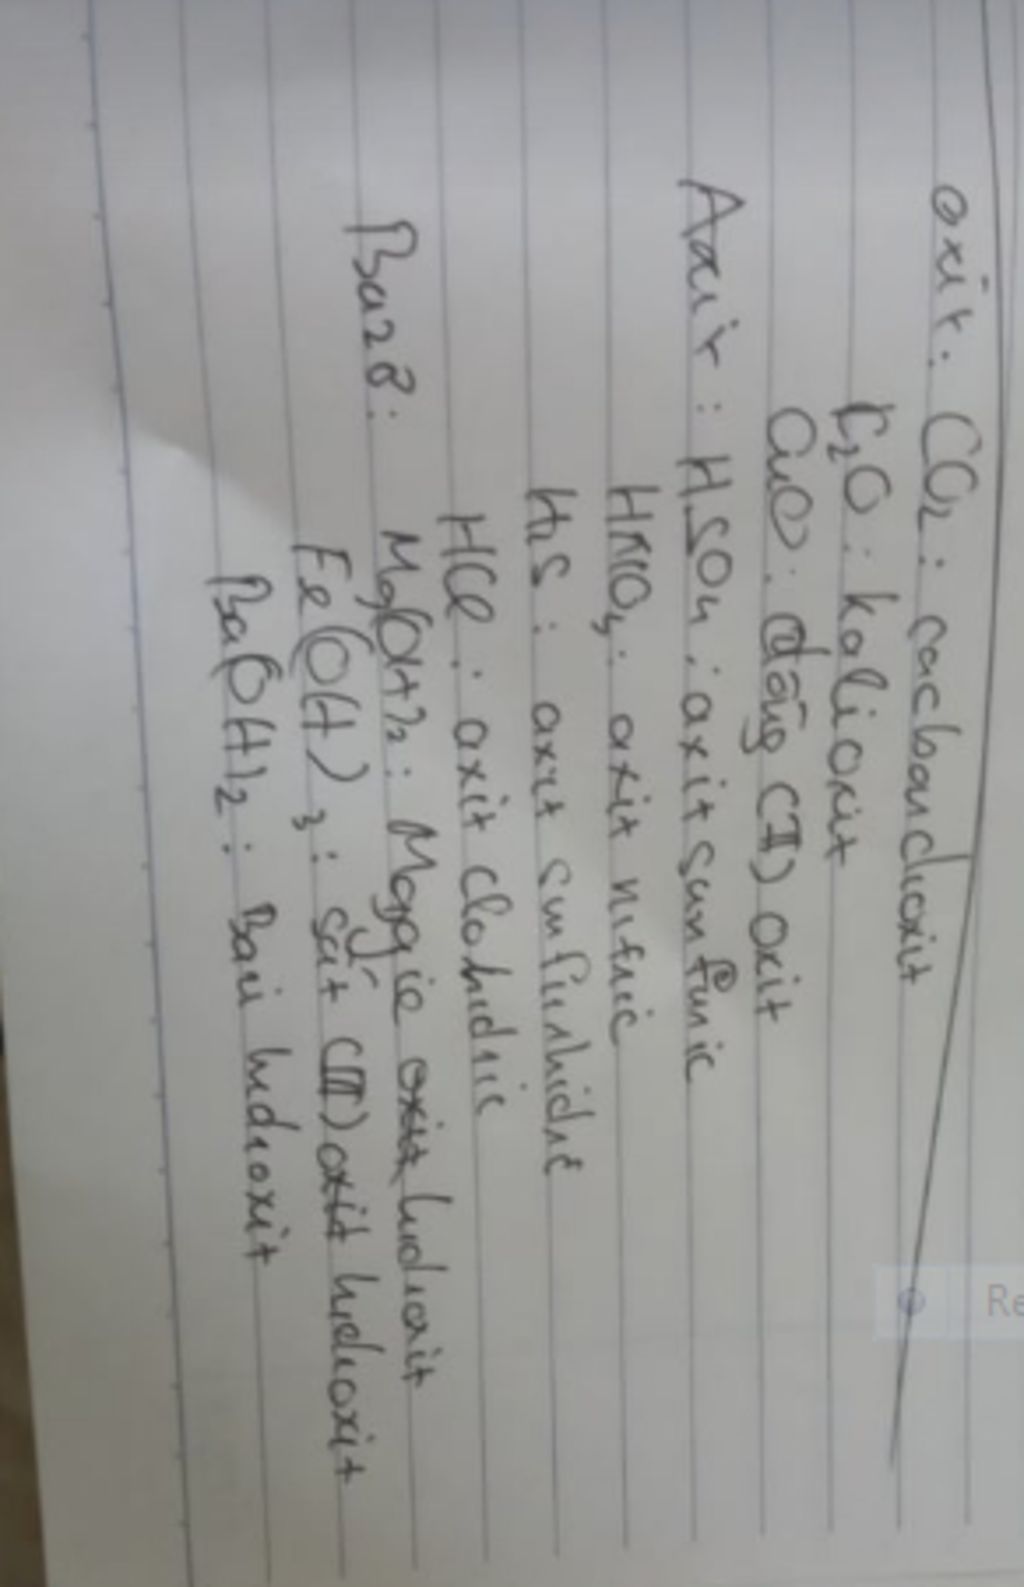 oxit: CO2: cacbon đioxit
K2O: kali oxit
CuO: đồng (II) oxit
Axit: H2SO4: axit sunfuric
HNO3: axit nitric
H2S: axit sunfuhidric
HCl: axit clohidric
Bazơ: Mg(OH)2: Magie hidroxit
Fe(OH)3: sắt (III) hidroxit
Ba(OH)2: Bari hidroxit
Re